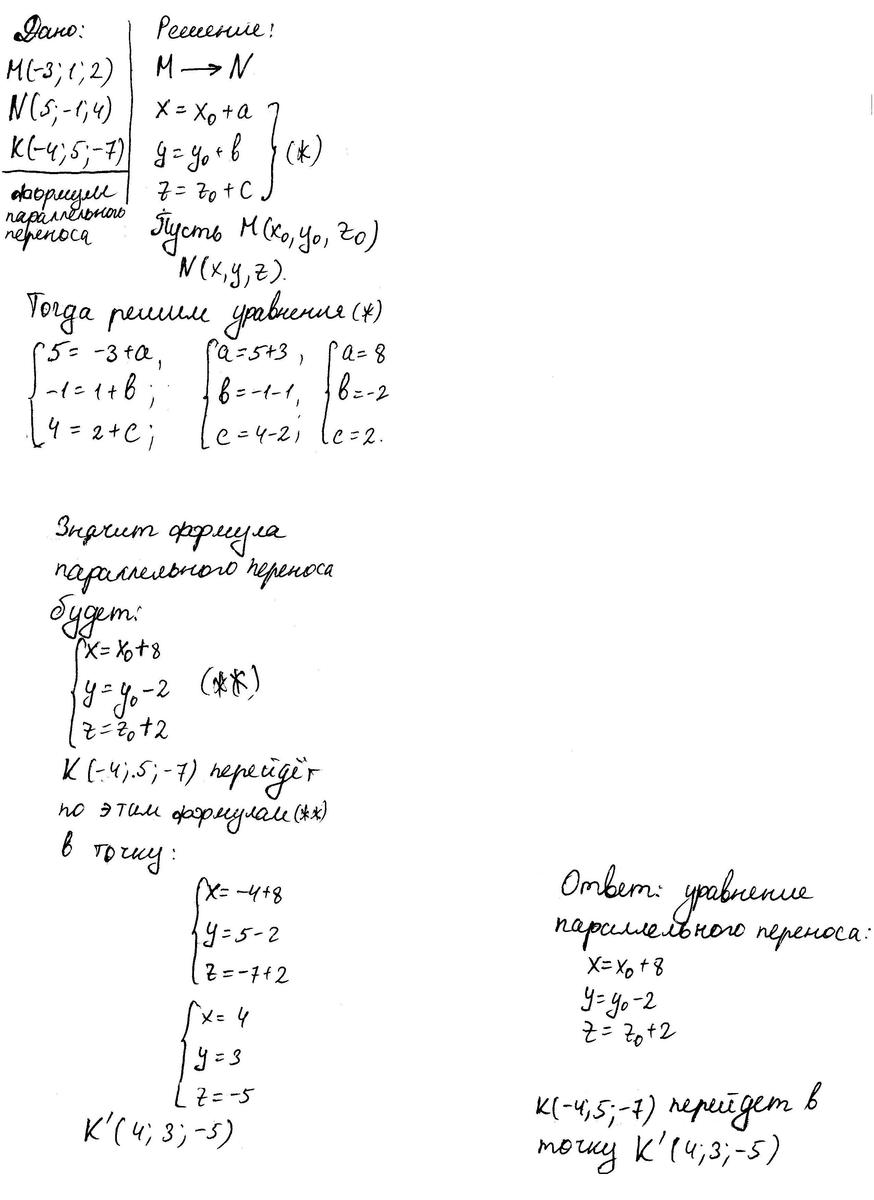 Дано:
M(-3; 1; 2)
N(5; -1; 4)
K(-4; 5; -7)
формулы
параллельного
переноса
Решение:
M → N
x = x₀ + a
y = y₀ + в } (*)
z = z₀ + c
Пусть M(x₀, y₀, z₀)
N(x, y, z).
Тогда решим уравнения (*)
{ 5 = -3 + a, { a = 5+3, { a = 8
-1 = 1 + в; в = -1-1, в = -2
4 = 2 + c; c = 4-2; c = 2.
Значит формула
параллельного переноса
будет:
{ x = x₀ + 8
y = y₀ - 2 (**)
z = z₀ + 2
K(-4; 5; -7) перейдёт
по этим формулам (**)
в точку:
{ x = -4+8
y = 5-2
z = -7+2
{ x = 4
y = 3
z = -5
K'(4; 3; -5)
Ответ: уравнение
параллельного переноса:
x = x₀ + 8
y = y₀ - 2
z = z₀ + 2
K(-4; 5; -7) перейдет в
точку K'(4; 3; -5)